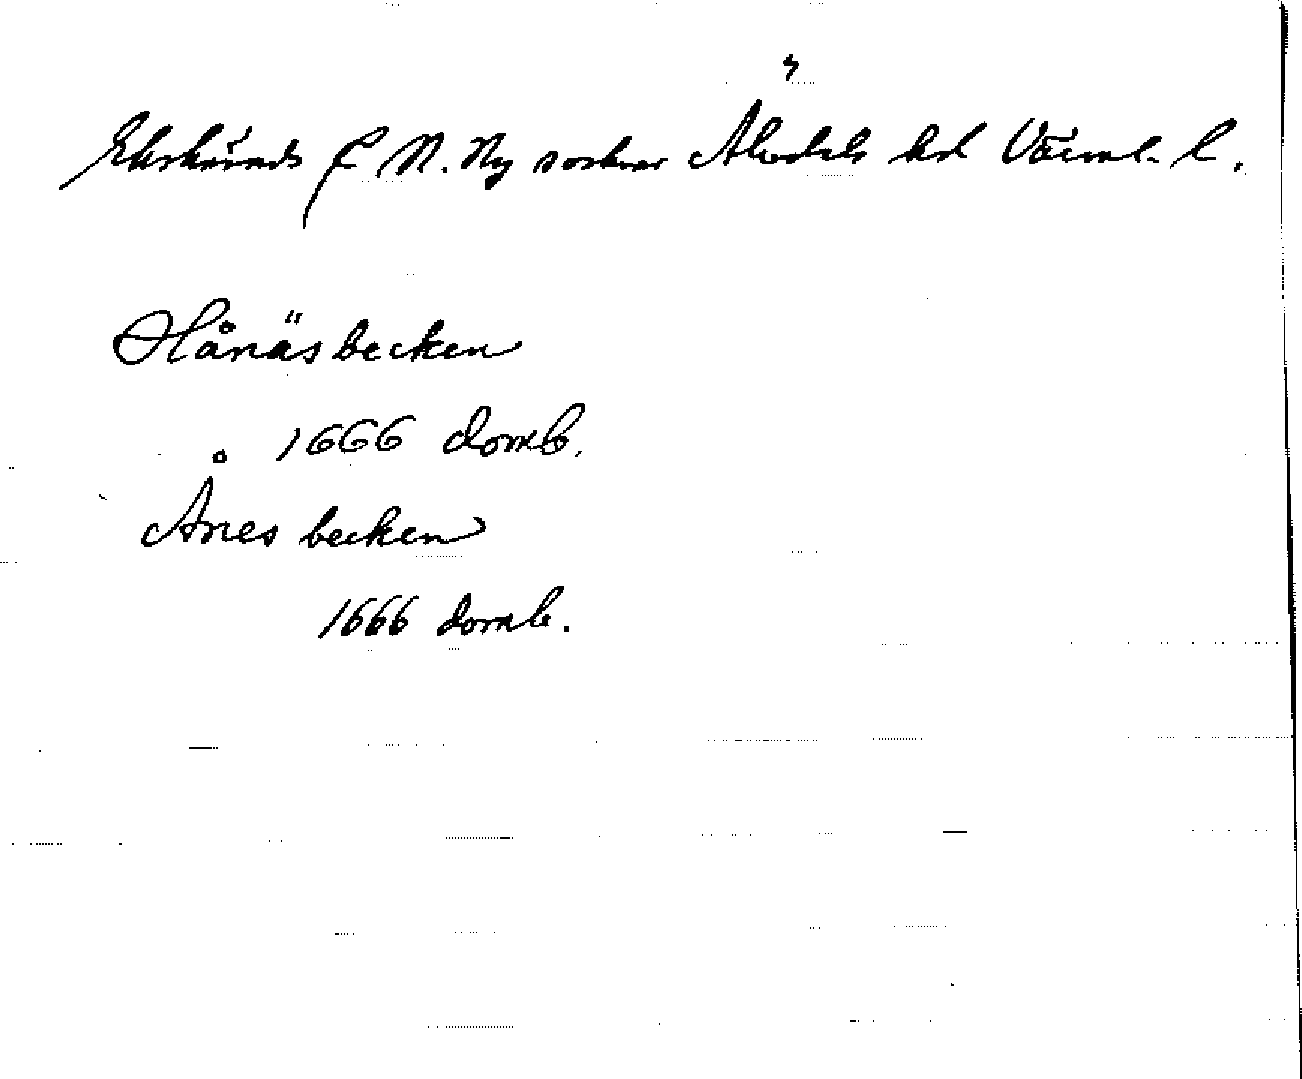 Ekshärads o N. Ny socknar Älvdals hd Värml. l.
Hånäsbecken
1666 domb.
Ånes becken
1666 domb.